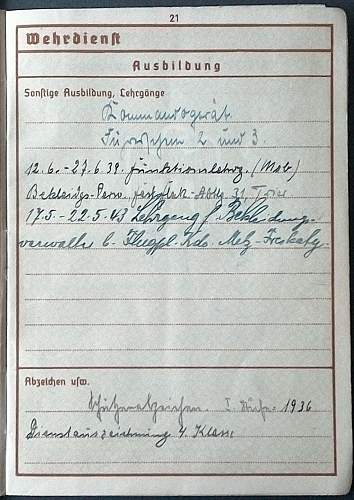 21
Wehrdienst
Ausbildung
Sonstige Ausbildung, Lehrgänge
Kommandogerät
2 und 3.
12.6. - 27.6.39. Funktionslehrg. (Mab)
Bekleidgs-Perw. 31, Trier
17.5. - 22.5.43 Lehrgang f. Bekleidungs-
verwalter b. Flugpl. Kdo. Metz-Freskaty.
Abzeichen usw.
Schützenabzeichen. I. Stufe. 1936
Dienstauszeichnung 4. Klasse